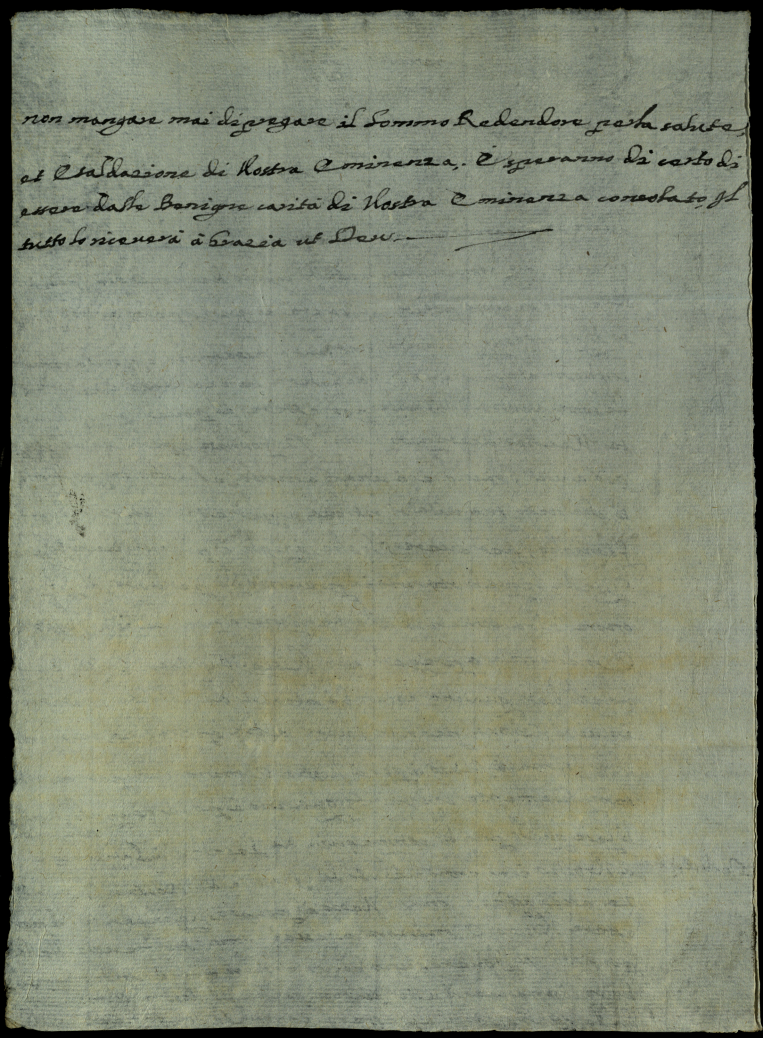 non mangare mai di pregare il Sommo Redendore per la salute,
et Esaldazione di Vostra Eminenza,. E speranno di certo di
essere dalle Benigne carità di Vostra Eminenza consolato, Il
tutto lo riceverà à Grazia ut Deu